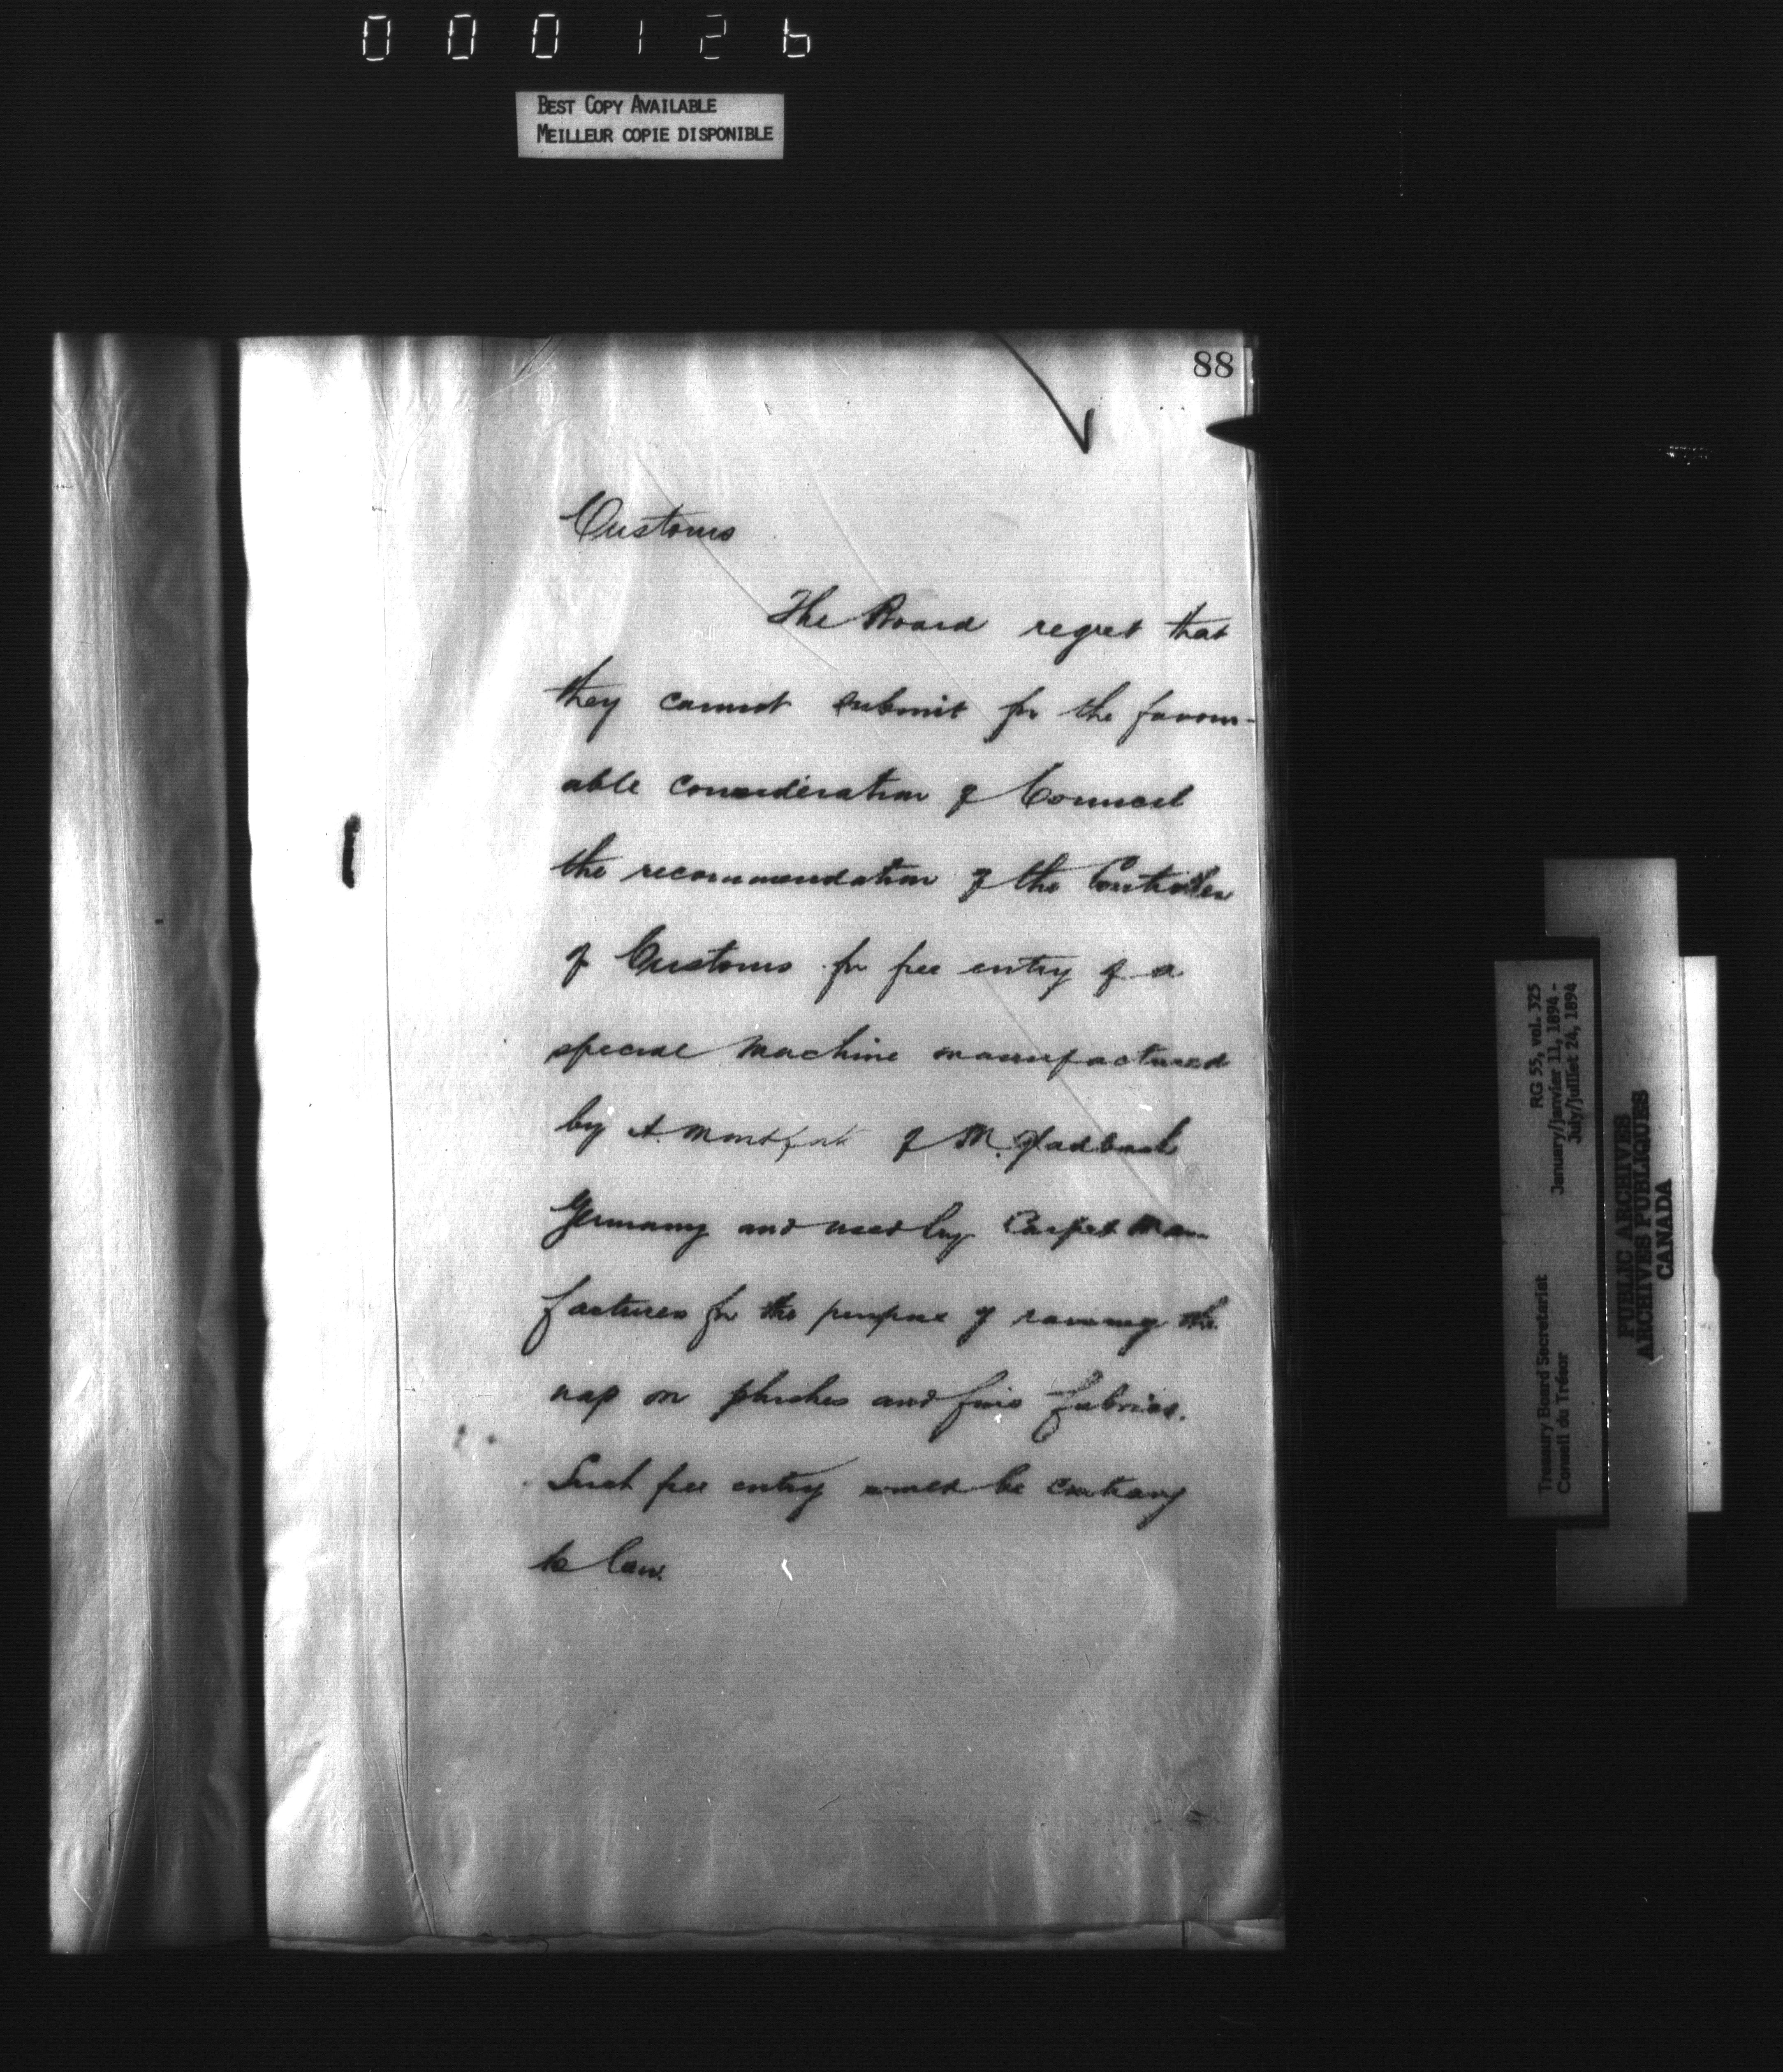 000126
BEST COPY AVAILABLE
MEILLEUR COPIE DISPONIBLE
88
Customs
The Board regret that
they cannot submit for the favour-
able consideration of Council
the recommendation of the Controller
of Customs for free entry of a
special machine manufactured
by A. Montfort of M. Gladbach
Germany and used by Carpet Man
factures for the purpose of raising the
nap on plushes and fine fabrics.
Such free entry would be contrary
to law.
Treasury Board Secretariat RG 55, vol. 325
Conseil du Trésor January/janvier 11, 1894 -
July/juillet 24, 1894
PUBLIC ARCHIVES
ARCHIVES PUBLIQUES
CANADA